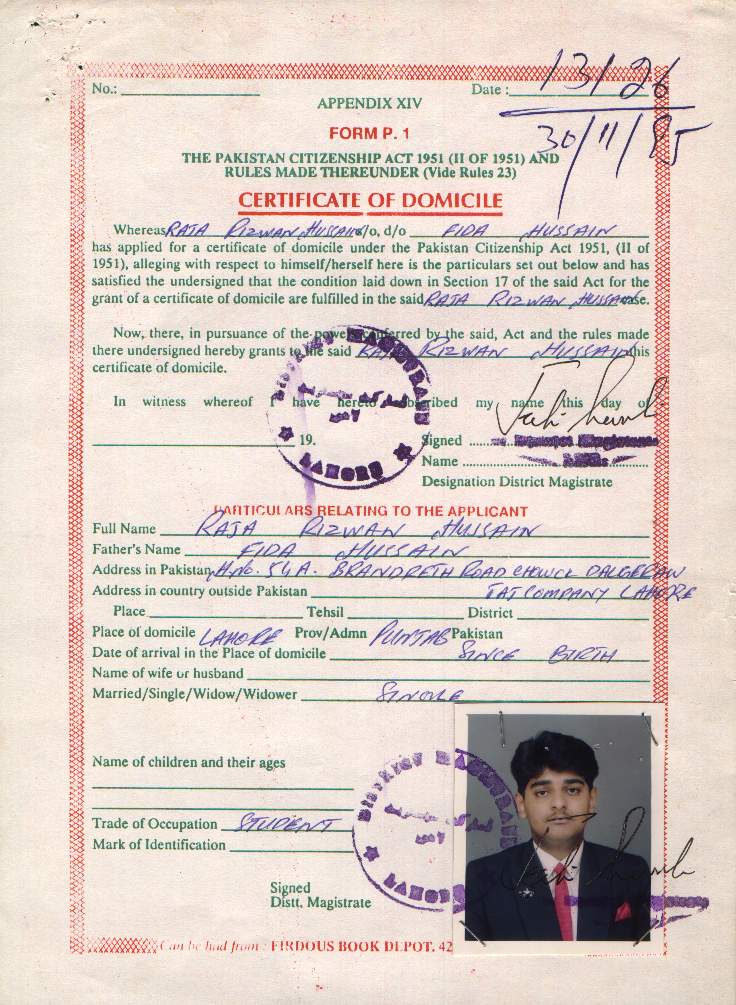 No.: ____________ Date : 13126
30/11/95
APPENDIX XIV
FORM P. 1
THE PAKISTAN CITIZENSHIP ACT 1951 (II OF 1951) AND
RULES MADE THEREUNDER (Vide Rules 23)
CERTIFICATE OF DOMICILE
Whereas RAJA RIZWAN HUSSAIN s/o, d/o FIDA HUSSAIN
has applied for a certificate of domicile under the Pakistan Citizenship Act 1951, (II of
1951), alleging with respect to himself/herself here is the particulars set out below and has
satisfied the undersigned that the condition laid down in Section 17 of the said Act for the
grant of a certificate of domicile are fulfilled in the said RAJA RIZWAN HUSSAIN case.
Now, there, in pursuance of the powers conferred by the said, Act and the rules made
there undersigned hereby grants to the said RAJA RIZWAN HUSSAIN this
certificate of domicile.
In witness whereof I have hereto subscribed my name this day of
____________ 19.
DISTRICT MAGISTRATE
LAHORE
Signed
Name
Designation District Magistrate
PARTICULARS RELATING TO THE APPLICANT
Full Name RAJA RIZWAN HUSSAIN
Father's Name FIDA HUSSAIN
Address in Pakistan H.No. 54A. BRANDRETH ROAD CHOWCK DALGERAW
Address in country outside Pakistan TAJ COMPANY LAHORE
Place ____________ Tehsil ____________ District ____________
Place of domicile LAHORE Prov/Admn PUNJAB Pakistan
Date of arrival in the Place of domicile SINCE BIRTH
Name of wife or husband
Married/Single/Widow/Widower SINGLE
Name of children and their ages
Trade of Occupation STUDENT
Mark of Identification
DISTRICT MAGISTRATE
LAHORE
Signed
Distt. Magistrate
Can be had from : FIRDOUS BOOK DEPOT. 42